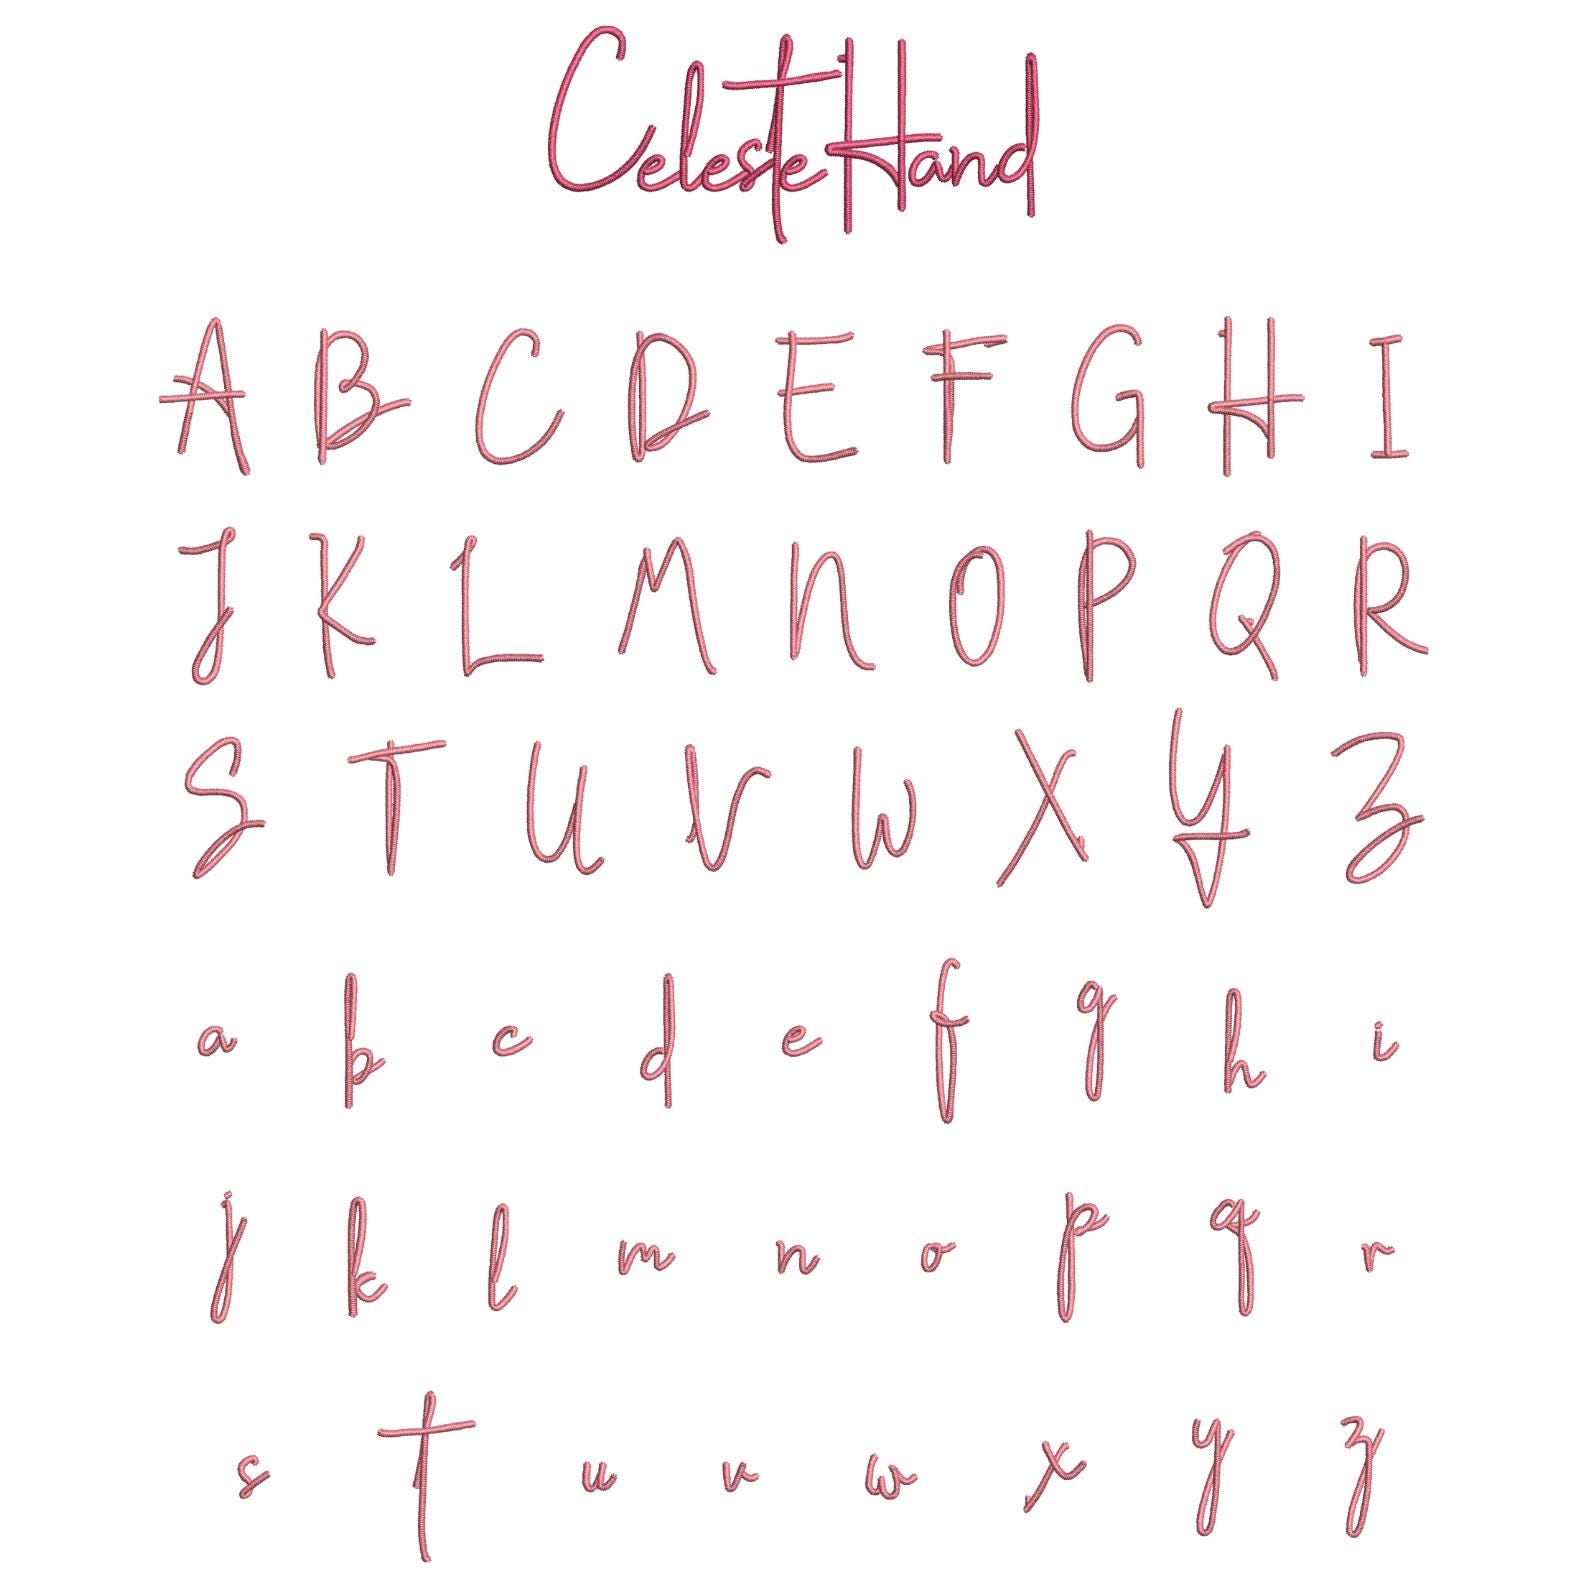 Celeste Hand
A B C D E F G H I
J K L M N O P Q R
S T U V W X Y Z
a b c d e f g h i
j k l m n o p q r
s t u v w x y z